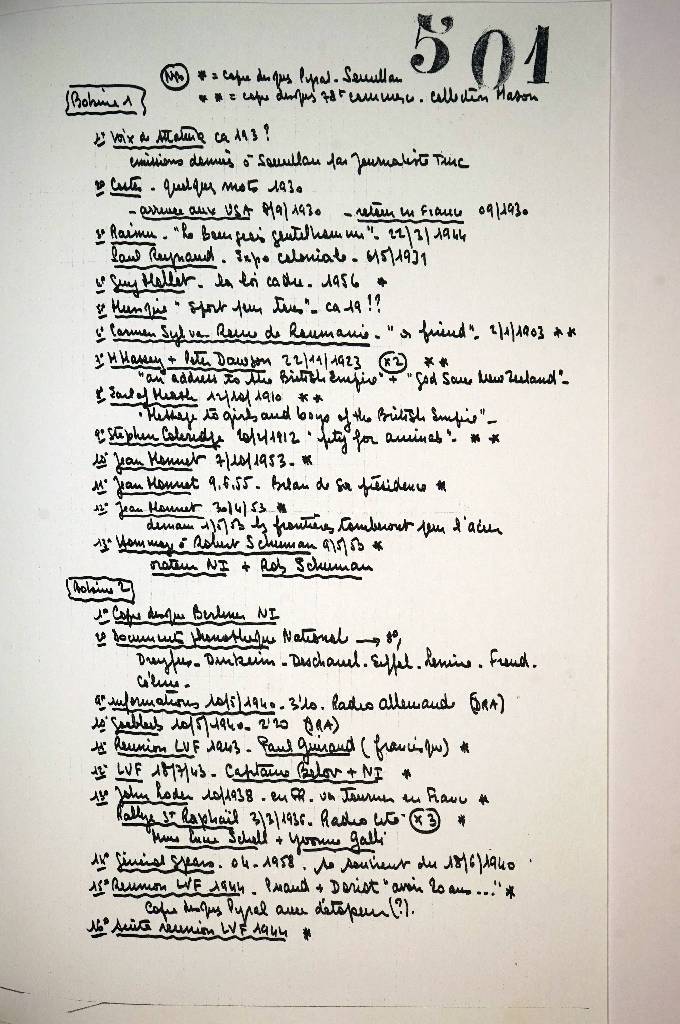 501
NB * = copie disques Pyral - Saoullan
* * = copie disques 78t commerce. Collection Mason
Bobine 1
1° Voix de ca 193?
émissions données à Saoullan par journaliste Turc
2° Costes - quelques mots 1930
- arrivée aux USA 8/9/1930 - retour en France 09/1930
3° Raimu - "le bourgeois gentilhomme" - 22/2/1944
Paul Reynaud - Expo coloniale - 6/5/1931
4° Guy Mollet - la loi cadre - 1956 *
5° "Sport pour tous" - ca 19!!
6° Carmen Sylva - Reine de Roumanie - "a friend" - 2/1/1903 * *
7° M Massey + Peter Dawson 22/11/1923 x2 * *
"an address to the British Empire" + "God Save New Zealand" -
8° Earl of Meath 12/10/1910 * *
"Message to girls and boys of the British Empire" -
9° Stephen Coleridge 20/2/1912 "pity for animals" - * *
10° Jean Monnet 7/10/1953 - *
11° Jean Monnet 9.6.55 - Bilan de sa présidence *
12° Jean Monnet 30/4/53 *
demain 1/5/53 les frontières tomberont pour l'acier
13° Hommage à Robert Schuman 9/5/53 *
orateur NI + Rob Schuman
Bobine 2
1° Copie disque Berliner NI
2° Documents phonothèque National → 8°,
Dreyfus - Durkheim - Deschanel - Eiffel - Lénine - Freud -
Céline -
9° informations 10/5/1940 - 3'10 - Radio Allemande (DRA)
10° Goebbels 10/5/1940 - 2'20 (DRA)
11° Réunion LVF 1943 - Paul Guiraud (francisque) *
12° LVF 18/7/43 - Capitaine Belov + NI *
13° John Loder 10/1938 - en FR. va tourner en France *
Rallye St Raphaël 3/2/1936 - Radio Cité x3 *
Mme Lucie Schell + Yvonne Galli
14° Général Spears - 04 - 1958 - se souvient du 18/6/1940
15° Réunion LVF 1944 - + Doriot "avoir 20 ans..." *
Copie disques Pyral avec (?).
16° Suite réunion LVF 1944 *